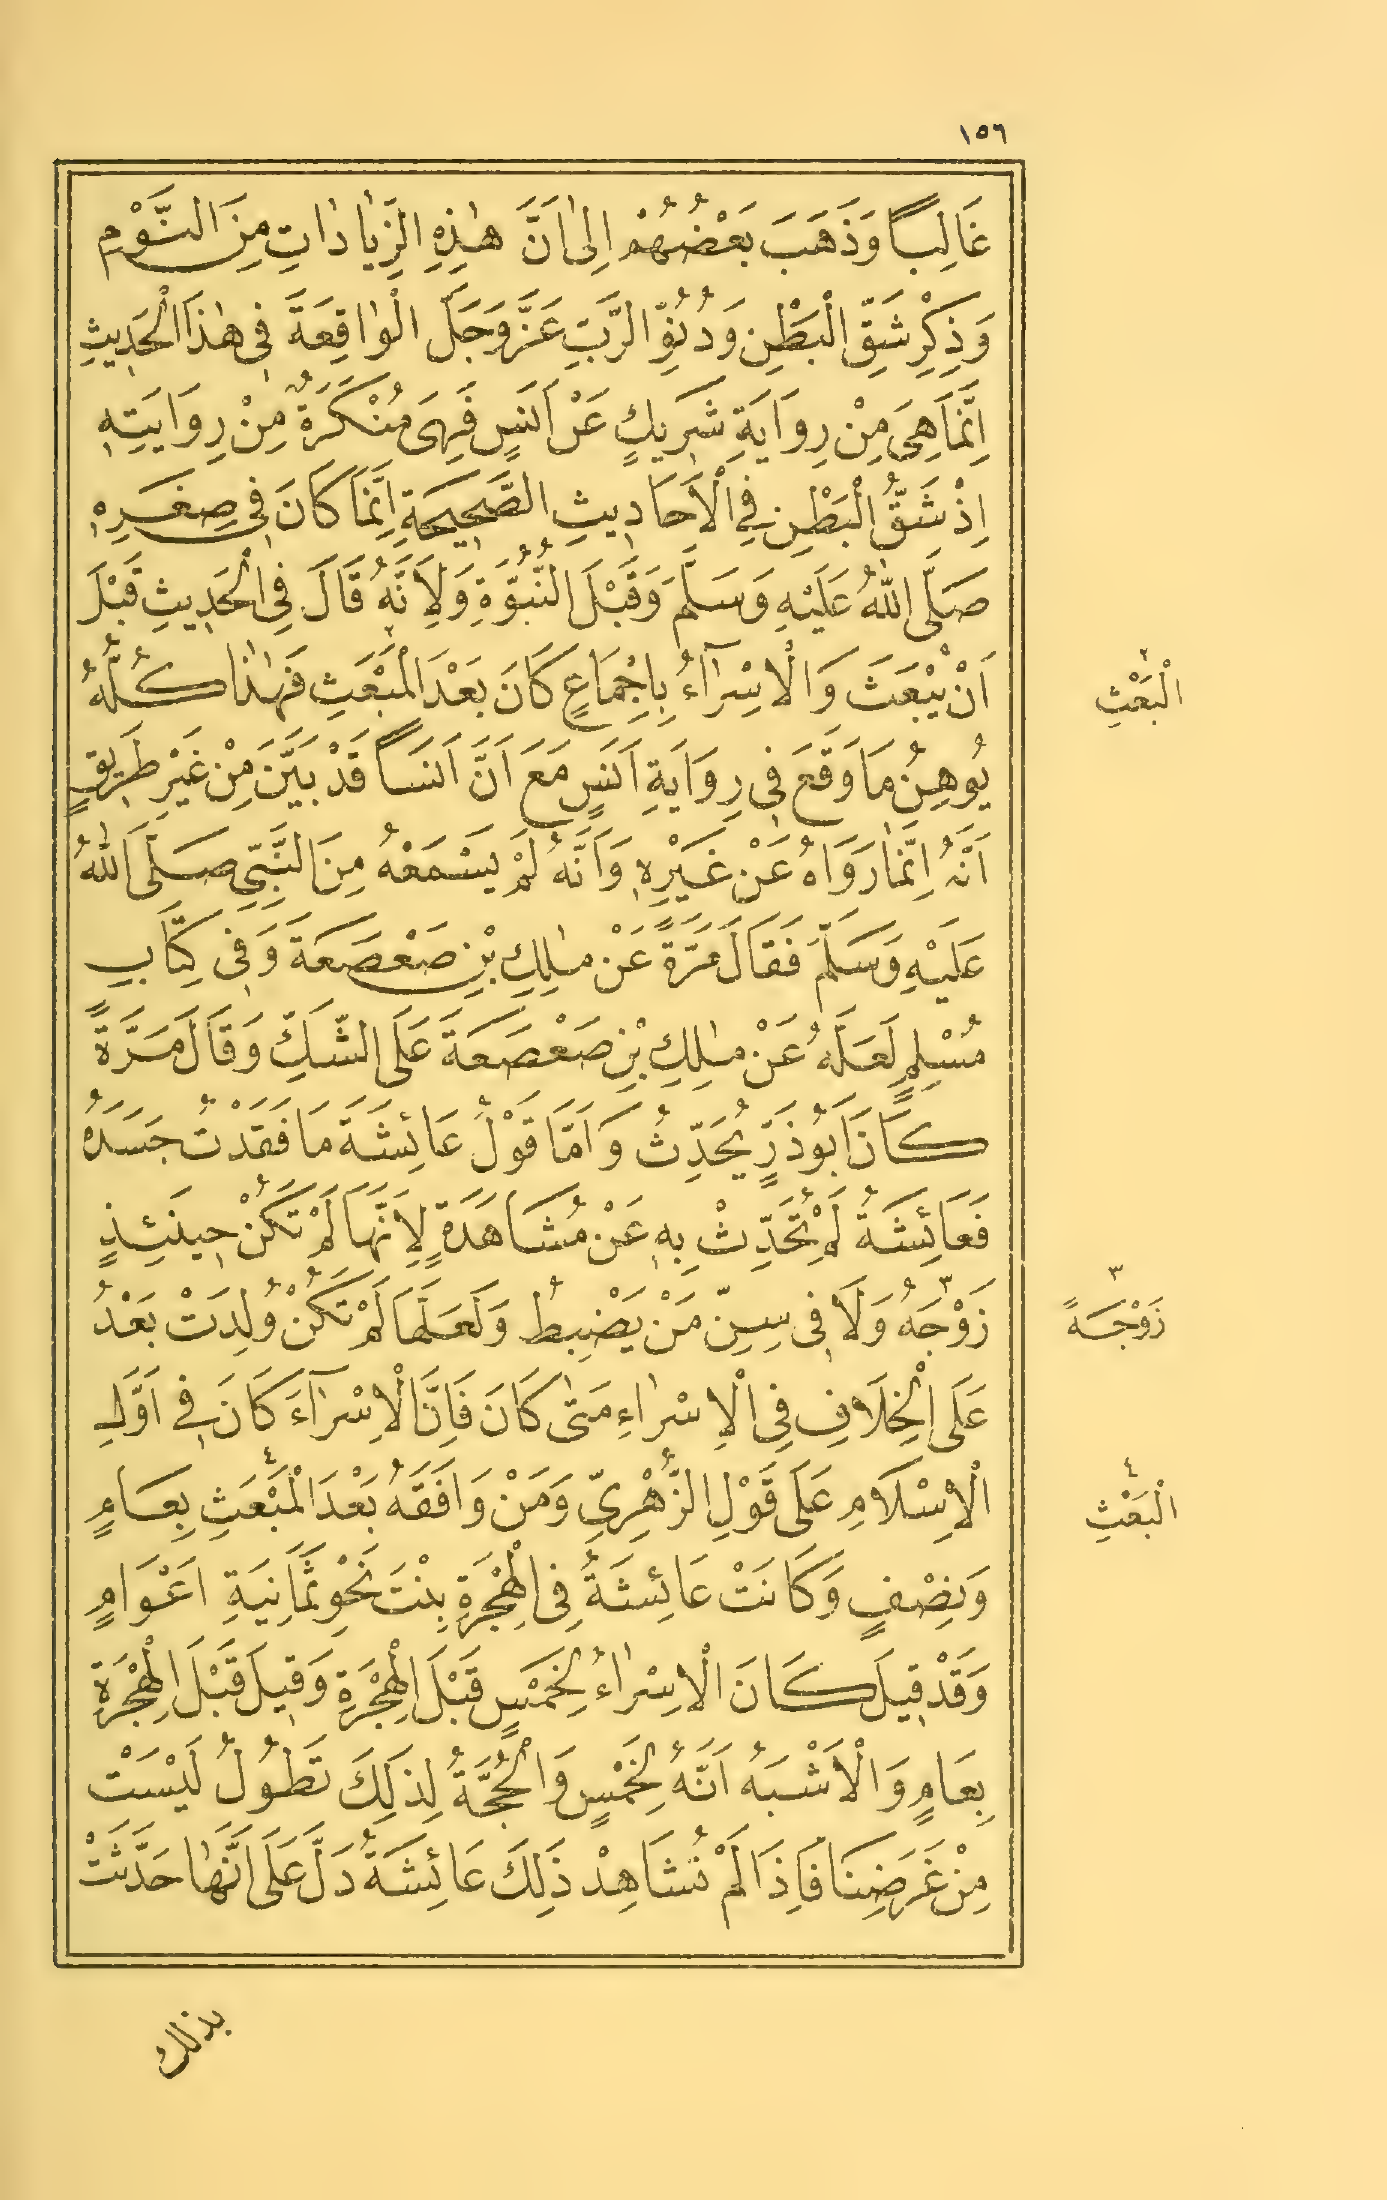 ١٥٦
غَالِبًا وَذَهَبَ بَعْضُهُمْ اِلٰى اَنَّ هٰذِهِ الزِّيَادَاتِ مِنَ النَّوْمِ
وَذِكْرِ شَقِّ الْبَطْنِ وَدُنُوِّ الرَّبِّ عَزَّ وَجَلَّ الْوَاقِعَةَ فِى هٰذَا الْحَدِيثِ
اِنَّمَا هِىَ مِنْ رِوَايَةِ شَرِيكٍ عَنْ اَنَسٍ فَهِىَ مُنْكَرَةٌ مِنْ رِوَايَتِهِ
اِذْ شَقُّ الْبَطْنِ فِى الْاَحَادِيثِ الصَّحِيحَةِ اِنَّمَا كَانَ فِى صِغَرِهِ
صَلَّى اللّٰهُ عَلَيْهِ وَسَلَّمَ وَقَبْلَ النُّبُوَّةِ وَلِاَنَّهُ قَالَ فِى الْحَدِيثِ قَبْلَ
اَنْ يُبْعَثَ وَالْاِسْرَآءُ بِاِجْمَاعٍ كَانَ بَعْدَ الْمَبْعَثِ ٢ فَهٰذَا كُلُّهُ
يُوهِنُ مَا وَقَعَ فِى رِوَايَةِ اَنَسٍ مَعَ اَنَّ اَنَسًا قَدْ بَيَّنَ مِنْ غَيْرِ طَرِيقٍ
اَنَّهُ اِنَّمَا رَوَاهُ عَنْ غَيْرِهِ وَاَنَّهُ لَمْ يَسْمَعْهُ مِنَ النَّبِىِّ صَلَّى اللّٰهُ
عَلَيْهِ وَسَلَّمَ فَقَالَ مَرَّةً عَنْ مٰلِكِ بْنِ صَعْصَعَةَ وَفِى كِتَابِ
مُسْلِمٍ لَعَلَّهُ عَنْ مٰلِكِ بْنِ صَعْصَعَةَ عَلَى الشَّكِّ وَقَالَ مَرَّةً
كَانَ اَبُو ذَرٍّ يُحَدِّثُ وَاَمَّا قَوْلُ عَائِشَةَ مَا فَقَدْتُ جَسَدَهُ
فَعَائِشَةُ لَمْ تُحَدِّثْ بِهِ عَنْ مُشَاهَدَةٍ لِاَنَّهَا لَمْ تَكُنْ حِينَئِذٍ
زَوْجَهُ ٣ وَلَا فِى سِنِّ مَنْ يَضْبِطُ وَلَعَلَّهَا لَمْ تَكُنْ وُلِدَتْ بَعْدُ
عَلَى الْخِلَافِ فِى الْاِسْرَاءِ مَتٰى كَانَ فَاِنَّ الْاِسْرَآءَ كَانَ فِى اَوَّلِ
الْاِسْلَامِ عَلَى قَوْلِ الزُّهْرِىِّ وَمَنْ وَافَقَهُ بَعْدَ الْمَبْعَثِ ٤ بِعَامٍ
وَنِصْفٍ وَكَانَتْ عَائِشَةُ فِى الْهِجْرَةِ بِنْتَ نَحْوِ ثَمَانِيَةِ اَعْوَامٍ
وَقَدْ قِيلَ كَانَ الْاِسْرَاءُ لِخَمْسٍ قَبْلَ الْهِجْرَةِ وَقِيلَ قَبْلَ الْهِجْرَةِ
بِعَامٍ وَالْاَشْبَهُ اَنَّهُ لِخَمْسٍ وَالْحُجَّةُ لِذٰلِكَ تَطُولُ لَيْسَتْ
مِنْ غَرَضِنَا فَاِذَا لَمْ تُشَاهِدْ ذٰلِكَ عَائِشَةُ دَلَّ عَلَى اَنَّهَا حَدَّثَتْ
بذلك
٢
الْبَعْثِ
٣
زَوْجَةً
٤
الْبَعْثِ